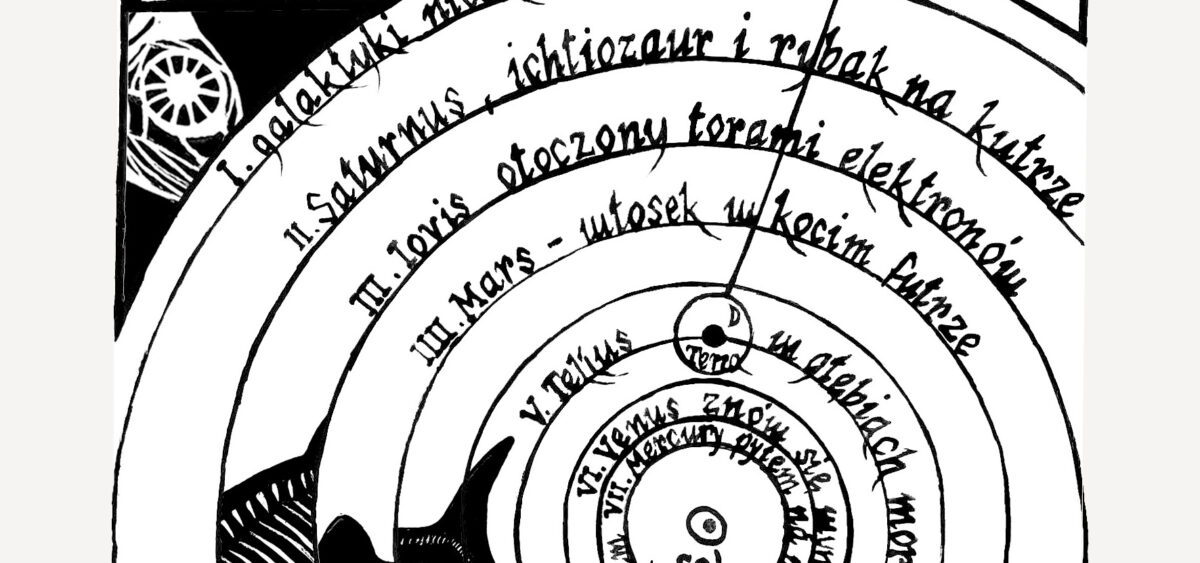 I. galaktyki
II. Saturnus, ichtiozaur i rybak na kutrze
III. Iovis otoczony torami elektronów
IIII. Mars - włosek w kocim futrze
V. Tellus w głębiach
D
Terra
VI. Venus znów się
VII. Mercury pyłem na